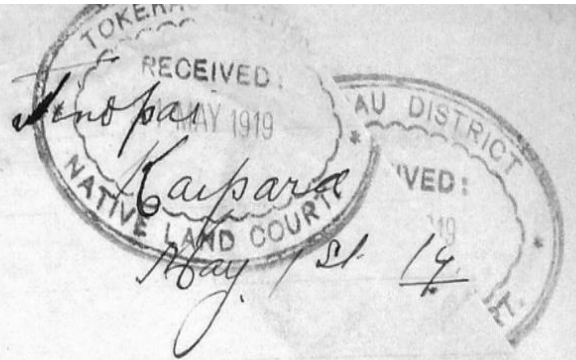 TOKERA
RECEIVED:
MAY 1919
NATIVE LAND COURT
AU DISTRICT
VED:
19
T.
Tinopai
Kaipara
May 1st 19